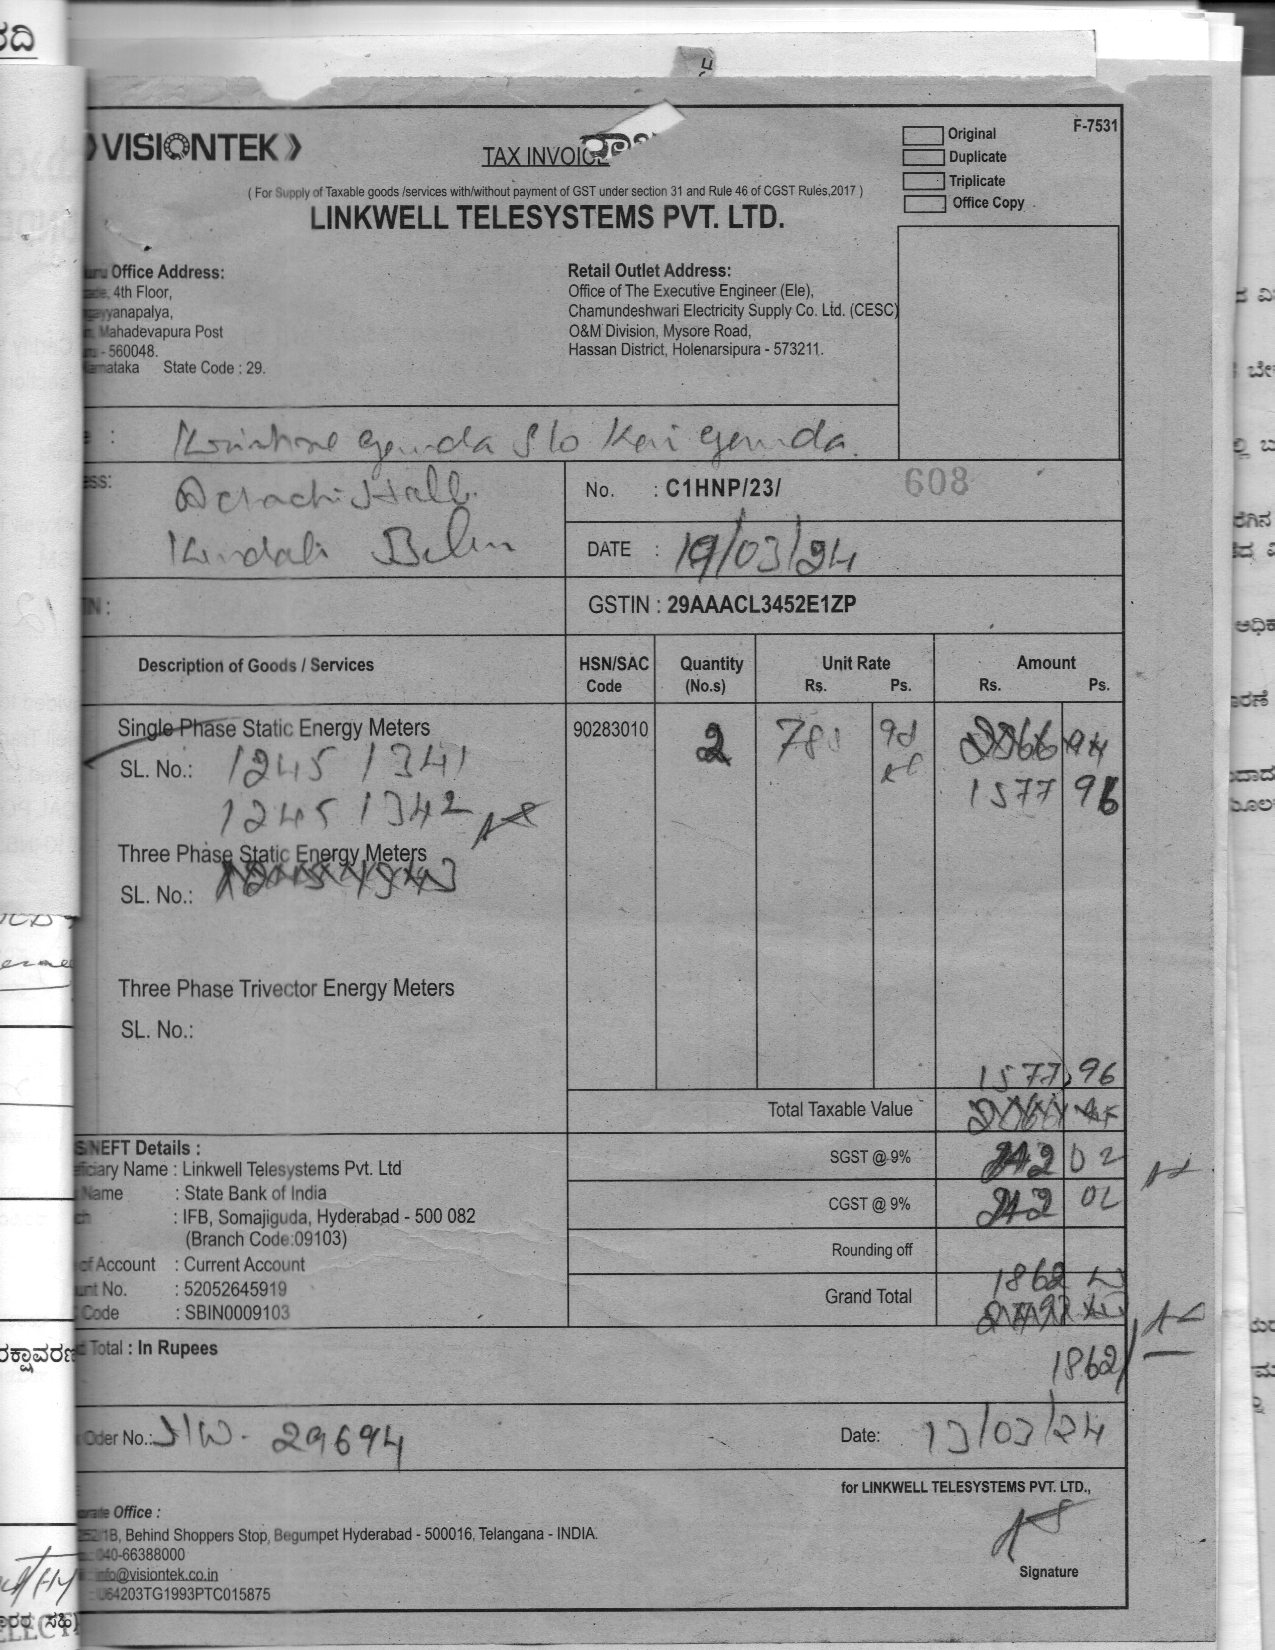 ರದಿ
VISIONTEK
TAX INVOICE
Original
Duplicate
Triplicate
Office Copy
F-7531
( For Supply of Taxable goods /services with/without payment of GST under section 31 and Rule 46 of CGST Rules,2017 )
LINKWELL TELESYSTEMS PVT. LTD.
Office Address:
4th Floor,
Mahadevapura Post
- 560048.
State Code : 29.
Retail Outlet Address:
Office of The Executive Engineer (Ele),
Chamundeshwari Electricity Supply Co. Ltd. (CESC)
O&M Division, Mysore Road,
Hassan District, Holenarsipura - 573211.
gowda S/o Kari gowda.
No. : C1HNP/23/ 608
DATE : 19/03/24
GSTIN : 29AAACL3452E1ZP
Description of Goods / Services
HSN/SAC Code
Quantity (No.s)
Unit Rate Rs. Ps.
Amount Rs. Ps.
Single Phase Static Energy Meters 90283010 2 788 98
SL. No.: 12451341 1577 96
12451342
Three Phase Static Energy Meters
SL. No.:
Three Phase Trivector Energy Meters
SL. No.:
1577.96
Total Taxable Value
SGST @ 9% 142 02
CGST @ 9% 142 02
Rounding off
Grand Total 1862
NEFT Details :
Name : Linkwell Telesystems Pvt. Ltd
Name : State Bank of India
: IFB, Somajiguda, Hyderabad - 500 082
(Branch Code:09103)
of Account : Current Account
No. : 52052645919
Code : SBIN0009103
Total : In Rupees 1862/-
Oder No.: 29694 Date: 13/03/24
for LINKWELL TELESYSTEMS PVT. LTD.,
Signature
Office :
1B, Behind Shoppers Stop, Begumpet Hyderabad - 500016, Telangana - INDIA.
040-66388000
info@visiontek.co.in
U64203TG1993PTC015875